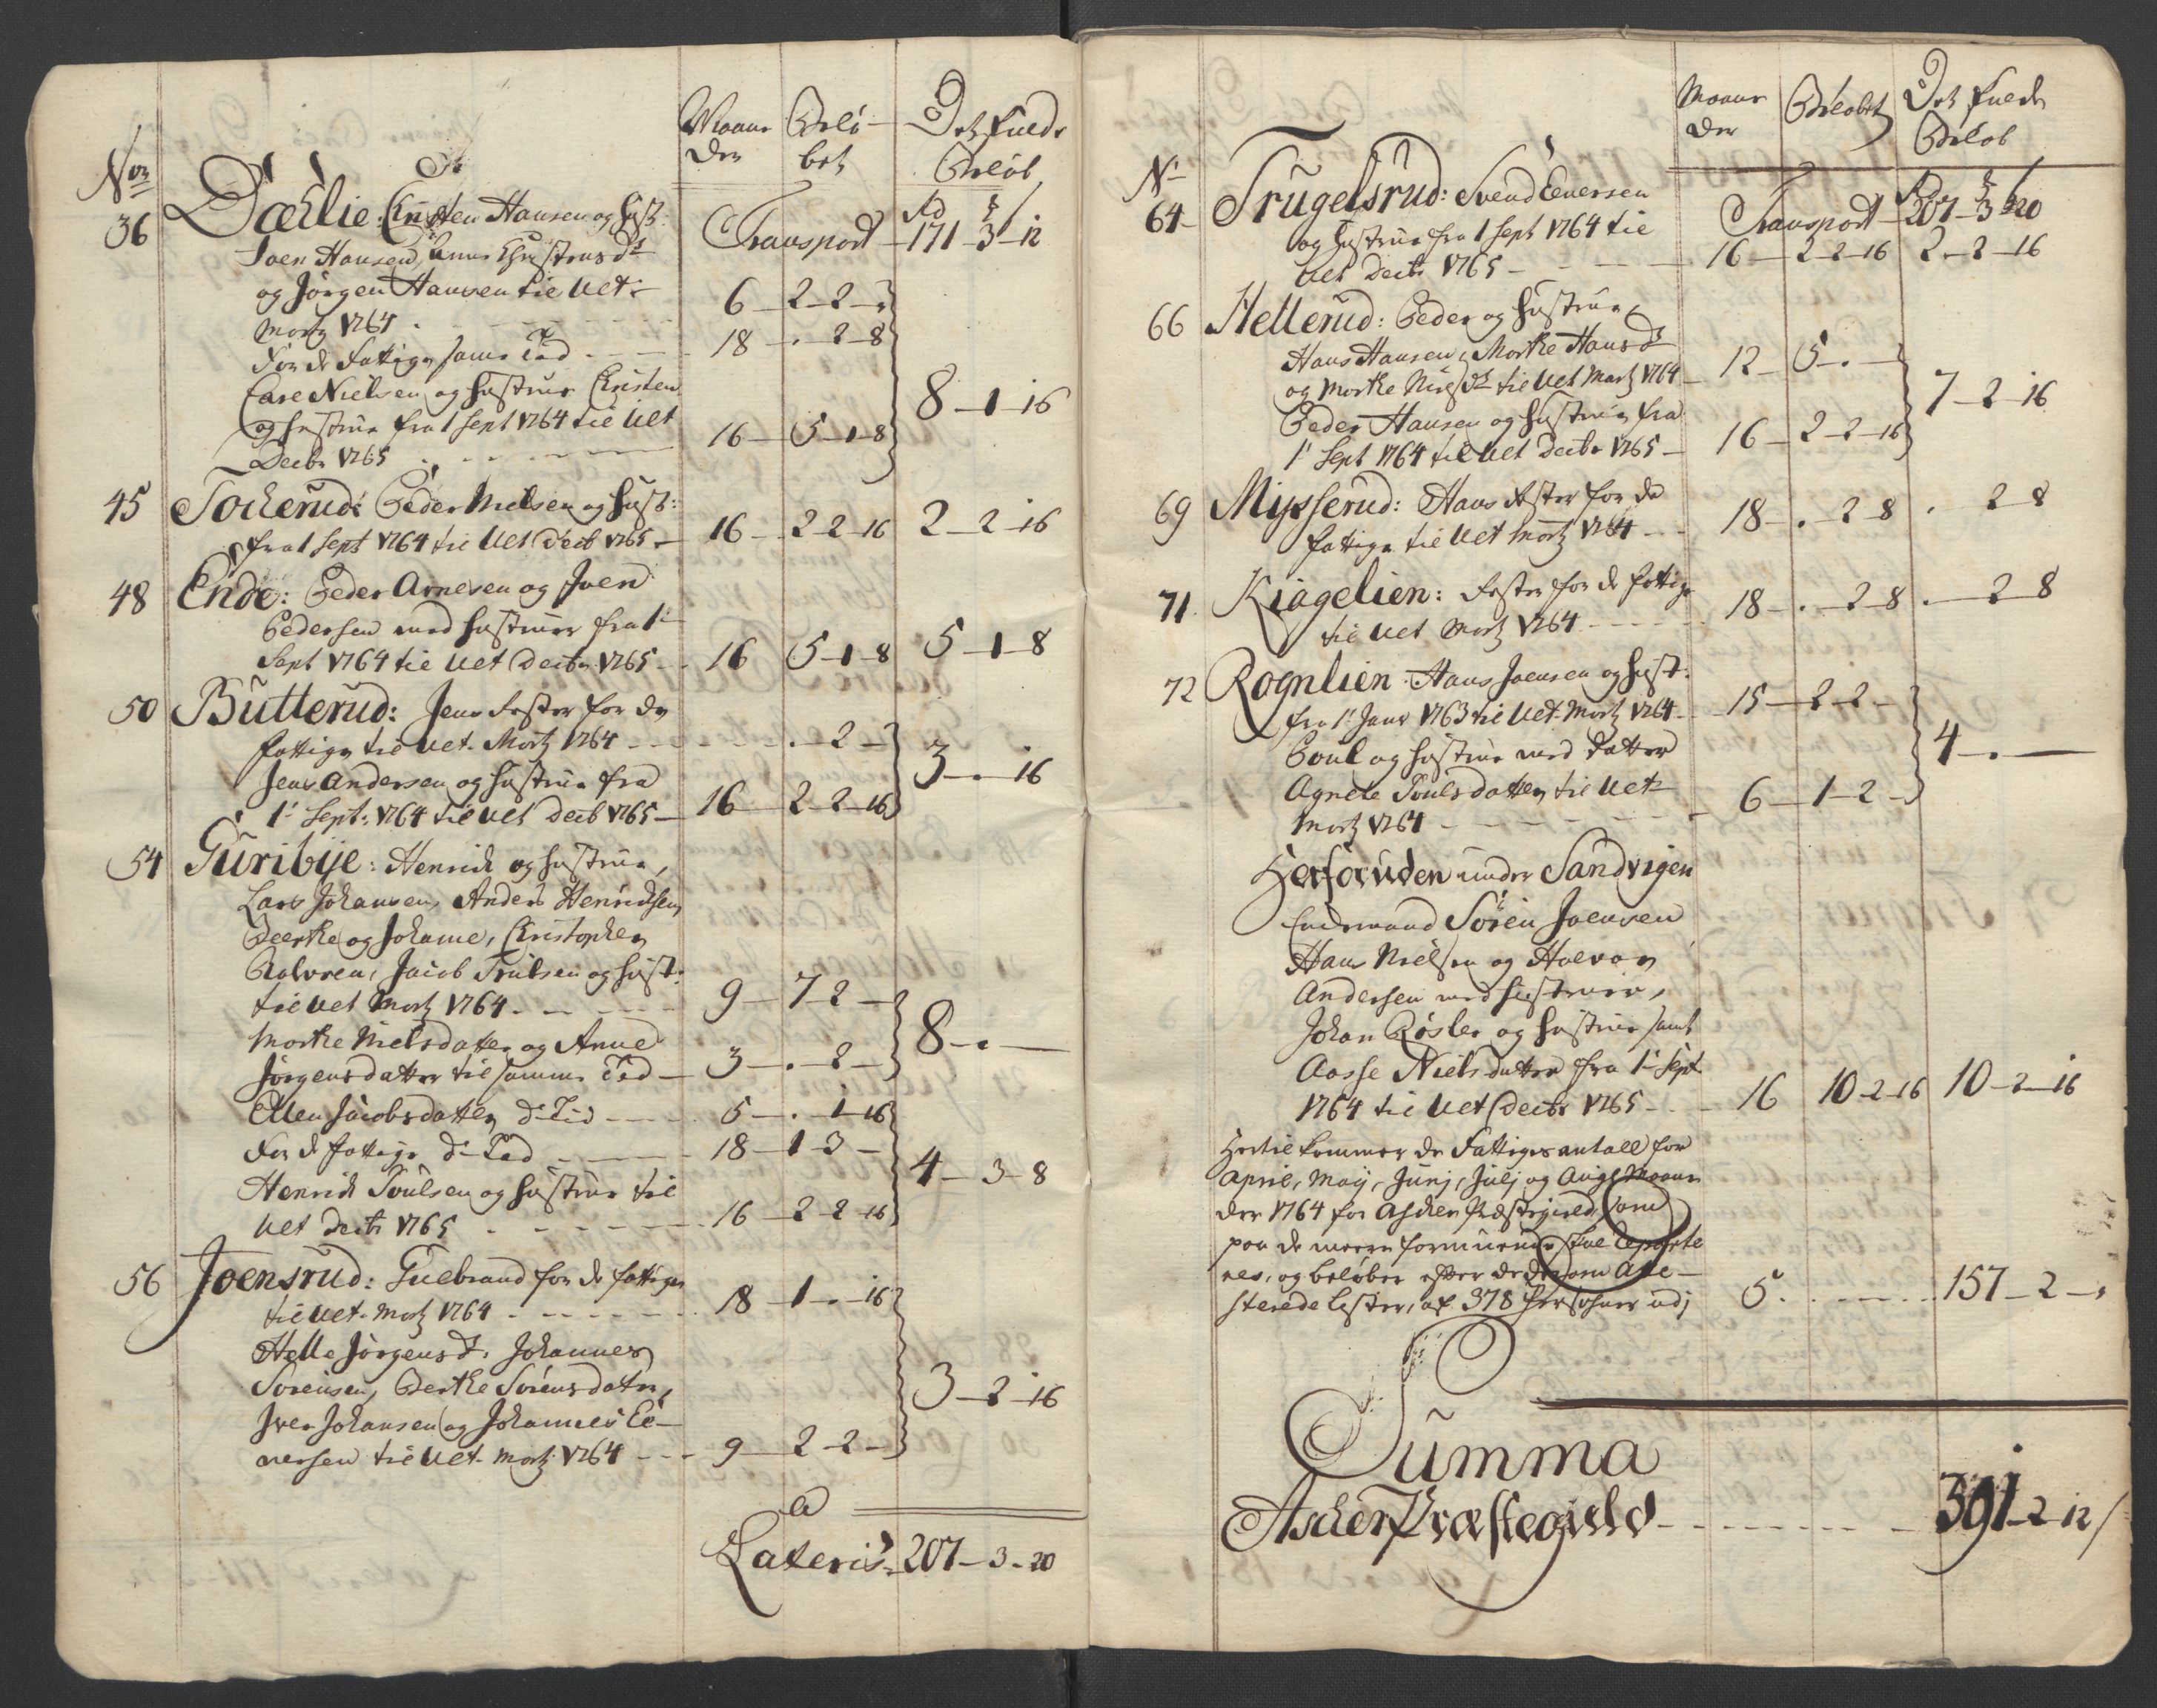 No
36
Maane
der
Beløbet
Det fulde
Beløb
Dæhlie: Christen Hansen og Hust:
Joen Hansen, Anne Christensd
og Jørgen Hansen til Ult:
Martz 1764 - 6 - 2 - 2 -
Transport - 171 - 3 - 12
For de Fattige samme Tid - 18 - . - 2 - 8
Lars Nielsen og Hustrue Christen
og Hustrue fra 1 Sept 1764 til Ult
Decbr 1765 - 16 - 5 - 1 - 8
8 - 1 - 16
45 Tockerud: Peder Nielsen og Hust:
fra 1 Sept 1764 til Ult Decb 1765 - 16 - 2 - 2 - 16 2 - 2 - 16
48 Ende: Peder Arnesen og Joen
Pedersen med Hustruer fra 1
Sept 1764 til Ult Decbr 1765 - 16 5 - 1 - 8 5 - 1 - 8
50 Butterud: Jens Fester for de
fattige til Ult. Martz 1764 - . - 2 -
Jens Andersen og Hustrue fra
1 Sept: 1764 til Ult Decb 1765 - 16 2 - 2 - 16
3 - . - 16
54 Guribye: Henrich og Hustrue,
Lars Johansen, Anders Henrichsen,
Beerthe og Johanne, Christopher
Halvorsen, Jacob Trulsen og Hust:
til Ult Martz 1764 - 9 - 7 - 2 -
Marthe Nielsdatter og Anne
Jørgensdatter til samme Tid - 3 - . - 2 -
8 - . -
Ellen Jacobsdatter d: Tid - 5 - . - 1 - 16
For de fattige d: Tid - 18 - 1 - 3 -
Henrich Poulsen og Hustrue til
Ult Decbr 1765 - 16 - 2 - 2 - 16
4 - 3 - 8
56 Joensrud: Gulbrand for de fattige
til Ult. Martz 1764 - 18 - 1 - . - 16
Helle Jørgensd: Johannes
Sørensen, Berthe Sørensdatter,
Iver Johansen og Johannes Ei-
versen til Ult. Martz 1764 - 9 - 2 - 2 -
3 - 2 - 16
Lateris 207 - 3 - 20
Maane
der
Beløbet
Det fulde
Beløb
No
64 Trugelsrud: Svend Evensen
og Hustrue fra 1 Sept 1764 til
Ult Decbr 1765 - 16 - 2 - 2 - 16 2 - 2 - 16
Transport - 207 - 3 - 20
66 Hellerud: Peder og Hustrue
Hans Hansen, Marthe Hansd
og Marthe Nielsd til Ult Martz 1764 - 12 - 5 - . -
Peder Hansen og Hustrue fra
1 Sept 1764 til Ult Decbr 1765 - 16 - 2 - 2 - 16
7 - 2 - 16
69 Mysserud: Hans Fester for de
fattige til Ult Martz 1764 - 18 - . - 2 - 8 . 2 - 8
71 Kiagelien: Fester for de fattige
til Ult Martz 1764 - 18 - . - 2 - 8 . - 2 - 8
72 Rognlien: Hans Joensen og Hust:
fra 1 Janv 1763 til Ult. Martz 1764 - 15 - 2 - 2 -
Poul og Hustrue med datter
Agnete Poulsdatter til Ult
Martz 1764 - 6 - 1 - 2 -
4 - . -
Herforuden under Sandvigen
Søren Joensen
Hans Nielsen og Halvor
Andersen med Hustruer,
Johan Røsler og Hustrue samt
Aasse Nielsdatter fra 1 Sept
1764 til Ult Decbr 1765 - 16 10 - 2 - 16 10 - 2 - 16
Hertil kommer de Fattiges antall for
April, Maij, Junj, Julj og Augt Maane
der 1764 for Ascher Præstegield, som
paa de meere formuende skal Reparte
res, og beløber efter de derom Atte-
sterede Lister, af 378 Personer udj 5 - 157 - 2 -
Summa
Ascher Præstegield - 391 - 2 - 12